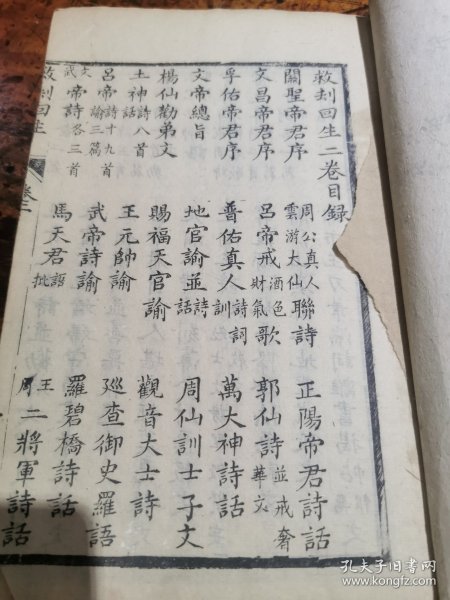 救刦回生二卷目録
關聖帝君序 周公真人雲游大仙聯詩 正陽帝君詩話
文昌帝君序 呂帝戒酒色財氣歌 郭仙詩並戒奢華文
孚佑帝君序 普佑真人詩詞訓 萬大神詩話
文帝總旨 地官諭並詩話 周仙訓士子文
楊仙勸弟文 賜福天官諭 觀音大士詩
土神詩八首話 王元帥諭 巡查御史羅語
呂帝詩十九首諭三篇 武帝詩諭 羅碧橋詩話
文武帝詩各三首 馬天君語批 王周二將軍詩話
救刦回生 卷二
孔夫子旧书网
www.kongfz.com